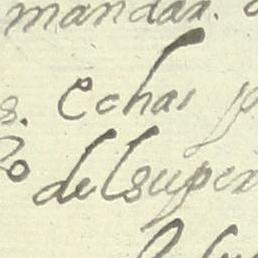 mandar.
s. echar p
do del super